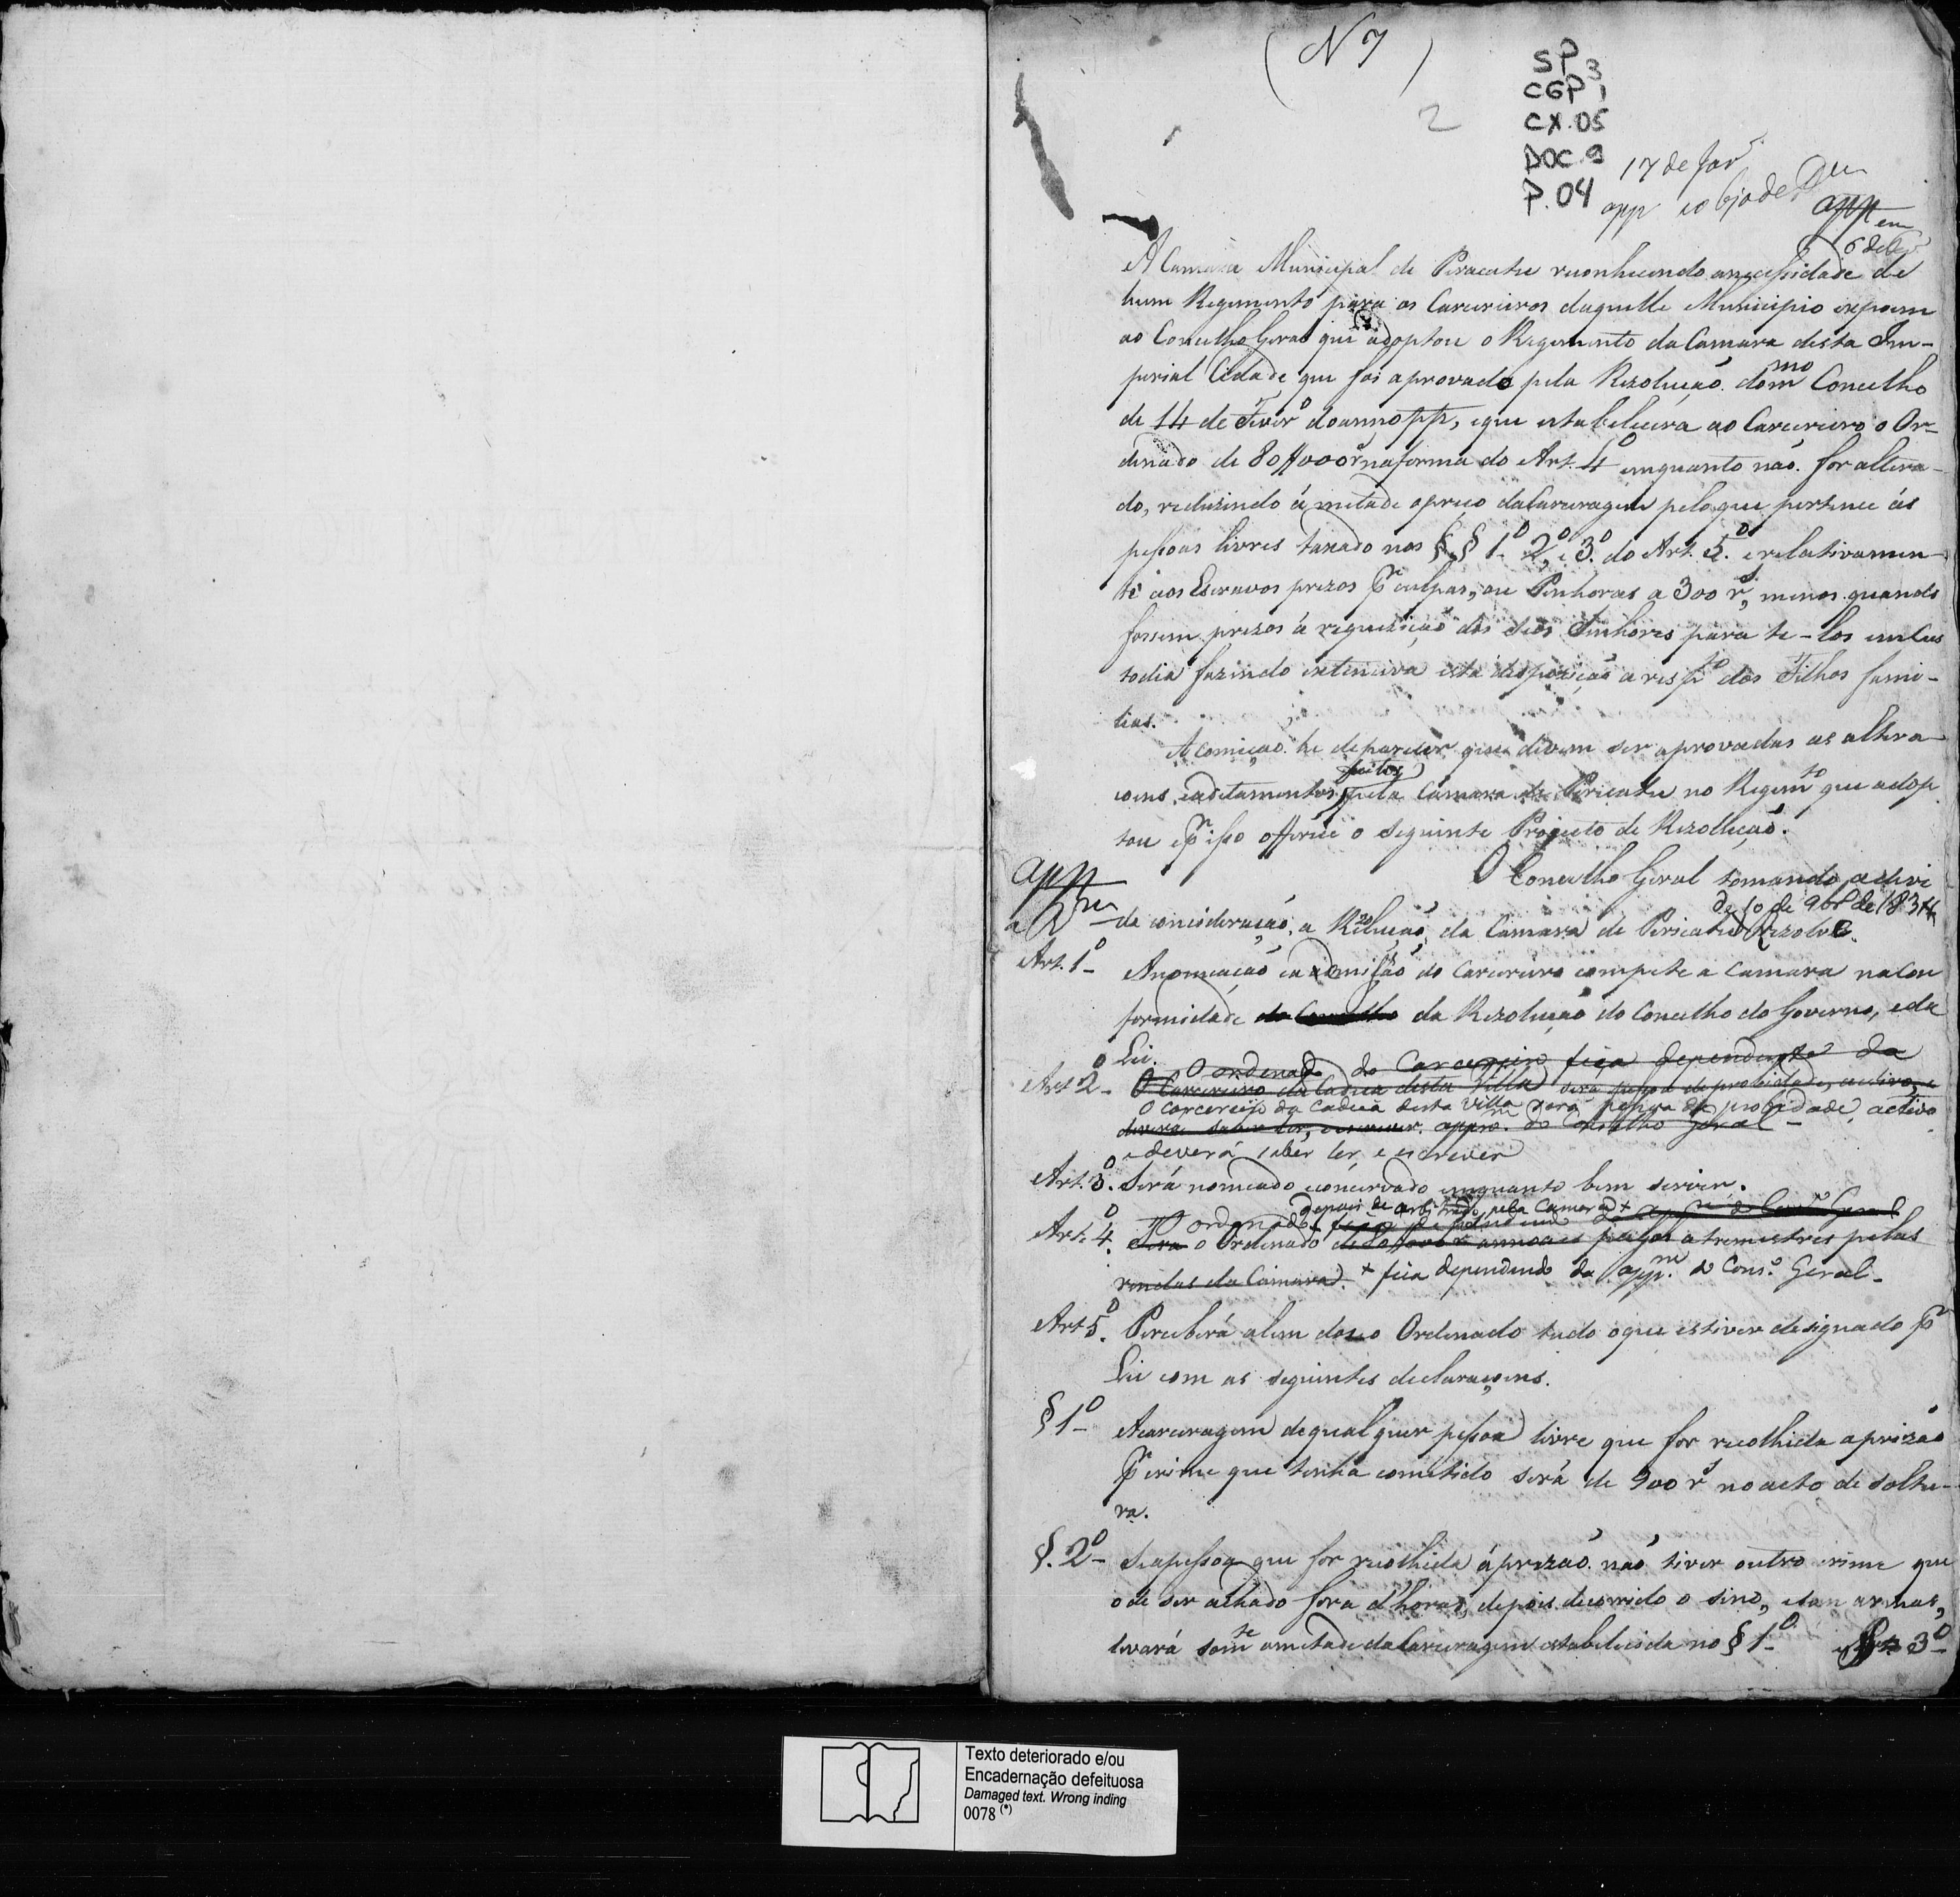 (N 7)
2
SP 3
CGP 1
CX.05
DOC.9
P.04
17 de Janro
app
app em
6 de
A Camara Municipal de Piracatu reconhecendo a necessidade de
hum Regimento para os Carcereiros daquelle Municipio expoem
ao Concelho Geral que adoptou o Regimento da Camara desta Im-
perial Cidade que foi aprovado pela Rezolução do mmo Concelho
de 14 de Fevero do anno pp, e que estabelecera ao Carcereiro o Or-
denado de 80$000 rs na forma do Art. 4º emquanto não for altera-
do, reduzindo á metade o preço da Carceragem pelo que pertence ás
pessoas livres taxado nos §.§ 1º 2º, e 3º. do Art. 5.º e relativamen-
te aos Escravos prezos pr culpas, ou Penhoras a 300 rs, menos quando
forem prezos á requizição dos seos Senhores para te-los em Cus
todia fazendo extenciva esta dispozição a respto dos Filhos fami-
lias.
A comição he de parecer que devem ser aprovadas as altera
coens, e aditamentos feitos pela Camara de Piricatu no Regimto que adop
tou e pr isso offerece o seguinte Projecto de Rezolução.
O Concelho Geral tomando a devi
app
a 2
de 10 de 9br de 1831
da concideração, a Rezolução da Camara de Piricatu Rezolve.
Art. 1º A nomeação e a demissão do Carcereiro compete a Camara na Con
formidade do Concelho da Rezolução do Concelho do Governo, e da
Lei.
O ordenado do Carcereiro fica dependente da
Art 2º O Carcereiro da Cadeia desta Villa será pessoa de probidade, activo, e
O Carcereiro da Cadeia desta Villa será pessoa de probidade, activo
deverá saber ler, e escrever. appm. do Conselho Geral
e deverá saber ler, e escrever
Art. 3º. Será nomeado e concervado emquanto bem servir.
depois de arbitrado pela Camara +
O ordenado fica dependendo da appm do Conso Geral
Art. 4º. Terá o Ordenado de 80$000 rs annoaes pagos a tremestres pelas
rendas da Camara. + fica dependendo da appm. do Cons.º Geral.
Art 5º. Perceberá alem do seo Ordenado tudo o que estiver designado pr
Lei com as seguintes declaraçoens.
§ 1º A carceragem de qual quer pessoa livre que for recolhida a prizão
pr crime que tenha cometido será de 900 rs no acto de soltu-
ra.
§. 2º Se a pessoa que for recolhida á prizão não tiver outro crime que
o de ser achado fora d'horas, depois de corrido o sino, e sem armas,
levará somte ametade da Carceragem estabelecida no § 1º
3º
Texto deteriorado e/ou
Encadernação defeituosa
Damaged text. Wrong inding
0078 (*)